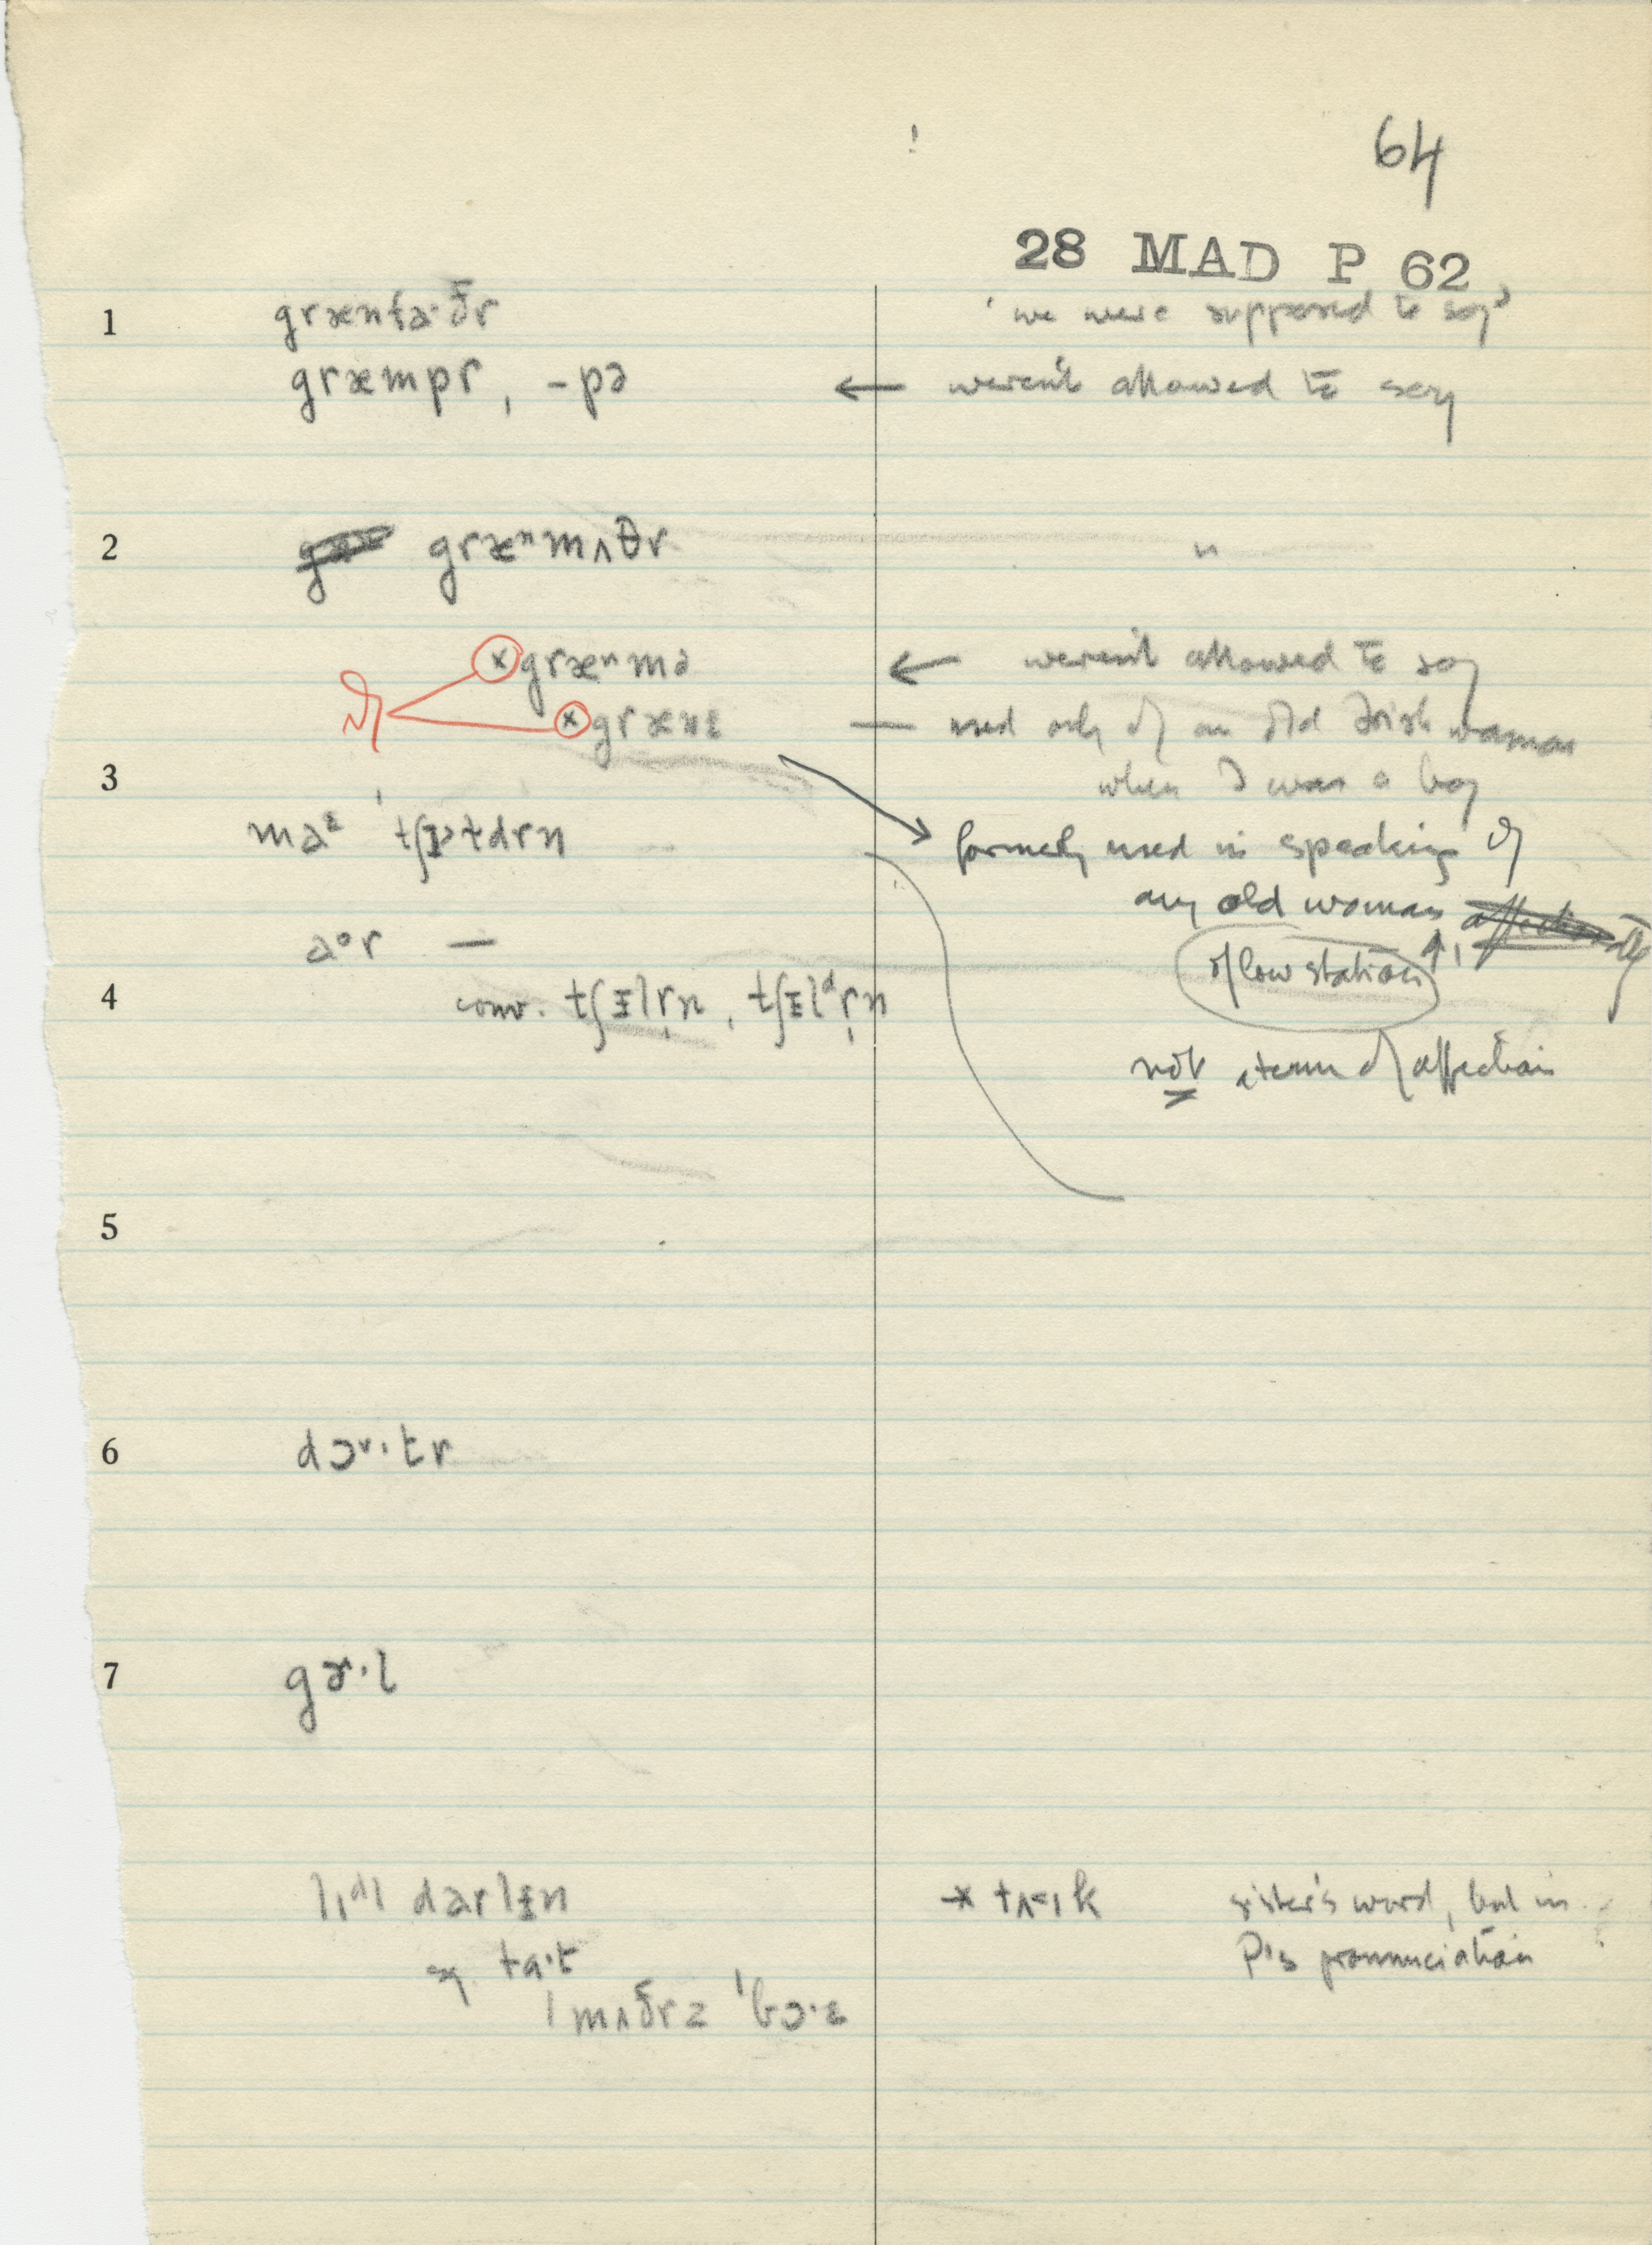 64
28 MAD P 62
1 grænfa·ðr ' we were supposed to say'
græmpr, -pə ← weren't allowed to say
2 græⁿmʌðr "
× græⁿmə ← weren't allowed to say
× grænɪ — used only of an old Irish woman
when I was a boy
3
formerly used in speaking of
any old woman
of low station
not a term of affection
4 conv.
5
6 dɔ·tr
7 gɚ·l
darlɪn sister's word, but in
P's pronunciation
ta·t
'mʌðrz 'bɔ·ɪ